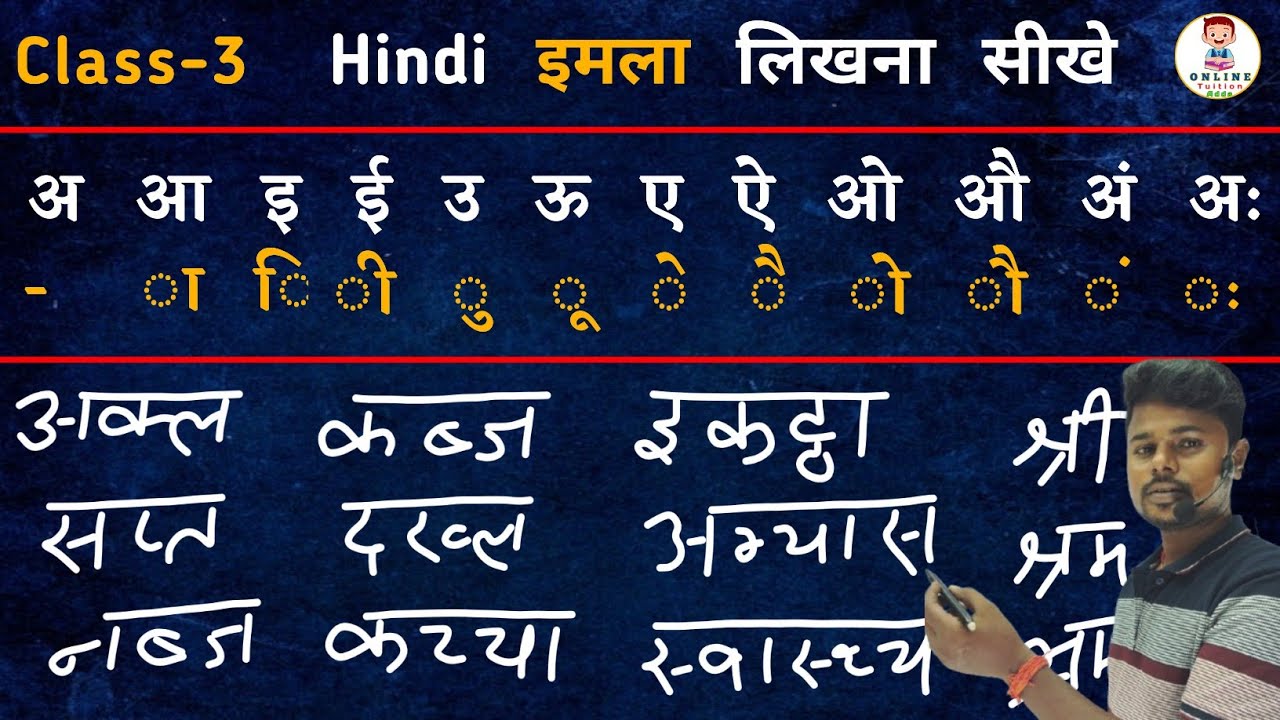 Class-3 Hindi इमला लिखना सीखे
ONLINE
Tuition
Adda
अ आ इ ई उ ऊ ए ऐ ओ औ अं अः
- ा ि ी ु ू े ै ो ौ ं ः
अक्ल कब्ज इकट्ठा श्री
सप्त दख्ल अभ्यास श्रम
नब्ज कच्चा स्वास्थ्य